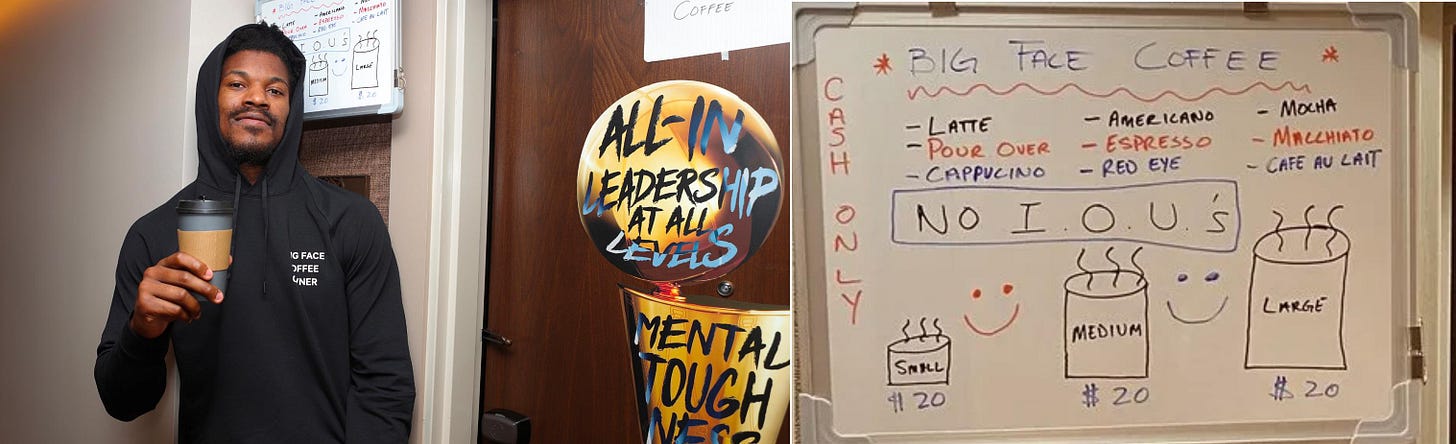 - LATTE - AMERICANO - MOCHA
POUR OVER - ESPRESSO - MACCHIATO
- RED EYE - CAFE AU LAIT
I.O.U.'s
MEDIUM LARGE
$ 20 $ 20
IG FACE
OFFEE
NER
COFFEE
ALL-IN
LEADERSHIP
AT ALL
LEVELS
MENTAL
TOUGH
NESS
* BIG FACE COFFEE *
CASH ONLY
- LATTE - AMERICANO - MOCHA
- POUR OVER - ESPRESSO - MACCHIATO
- CAPPUCINO - RED EYE - CAFE AU LAIT
NO I.O.U.'s
SMALL MEDIUM LARGE
$ 20 $ 20 $ 20